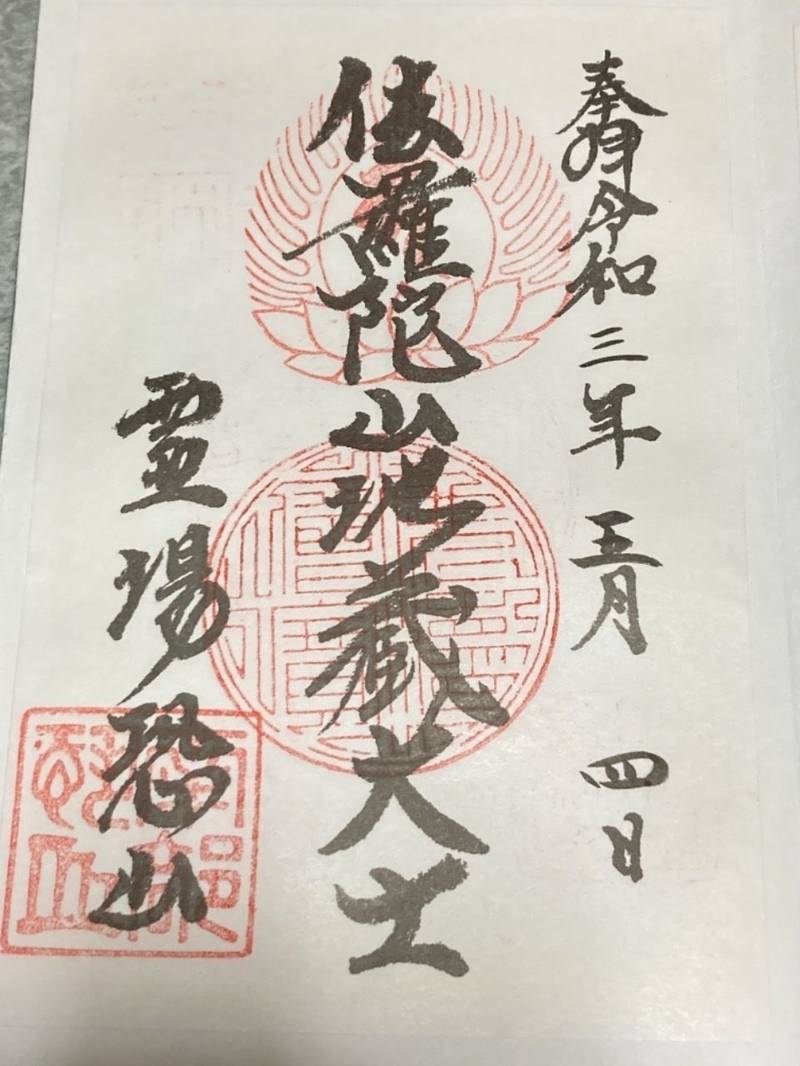 奉拝 令和三年 五月 四日
佉羅陀山地蔵大士
霊場恐山